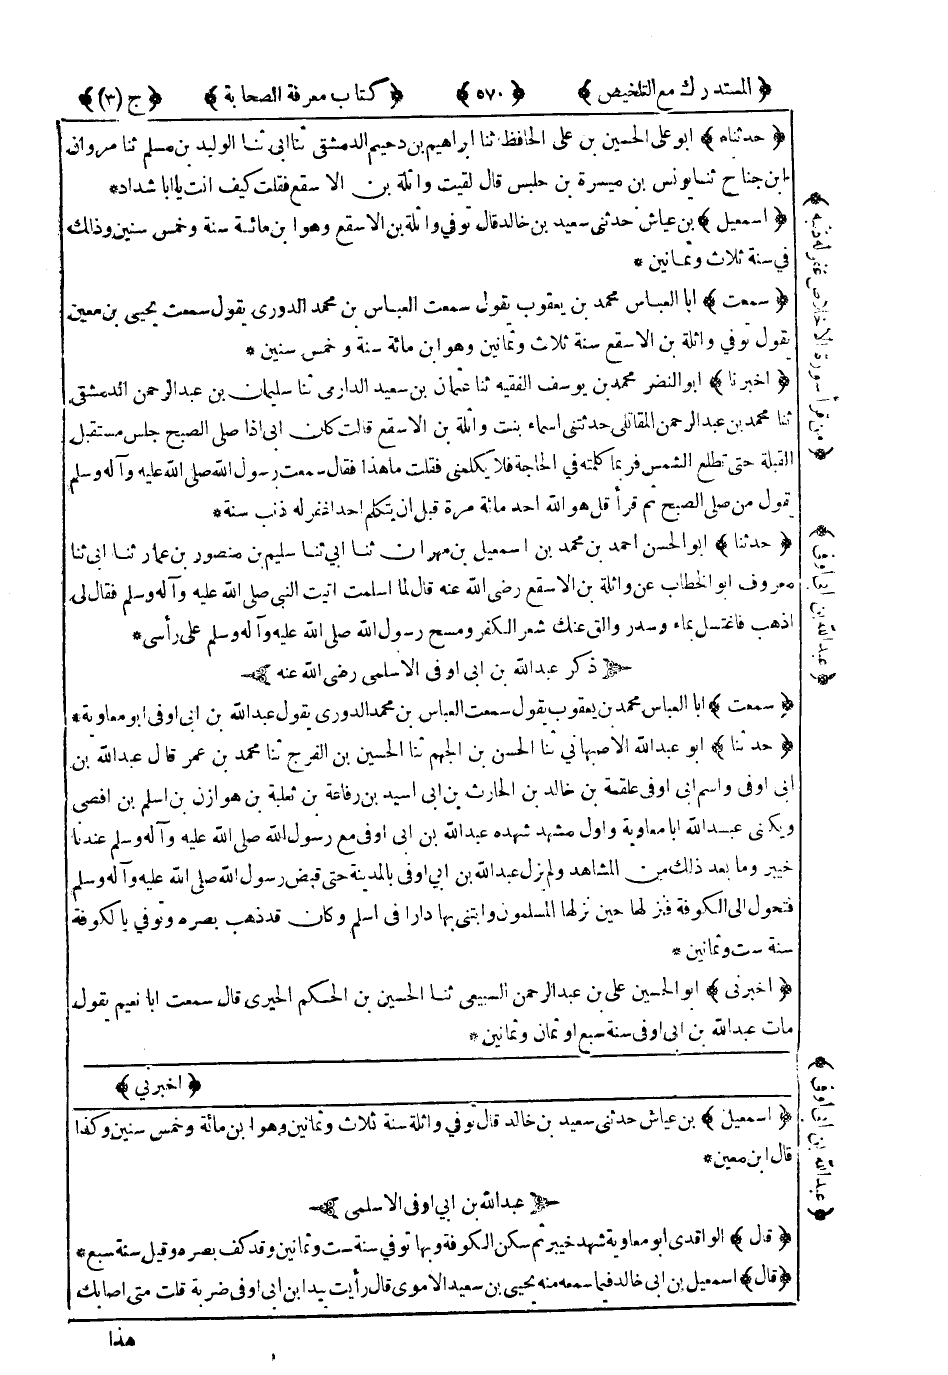 ﴿ المستدرك مع التلخيص ﴾ ﴿ ٥٧٠ ﴾ ﴿ كتاب معرفة الصحابة ﴾ ﴿ ج (٣) ﴾
﴿ حدثناه ﴾ ابو على الحسين بن على الحافظ ثنا ابراهيم بن دحيم الدمشقى ثنا ابى ثنا الوليد بن مسلم ثنا مروان
ابن جناح ثنا يونس بن ميسرة بن حلبس قال لقيت واثلة بن الاسقع فقلت كيف انت يا ابا شداد*
﴿ اسمعيل ﴾ بن عياش حدثنى سعيد بن خالد قال توفي واثلة بن الاسقع وهو ابن مائة سنة وخمس سنين وذلك
في سنة ثلاث وثمانين *
﴿ سمعت ﴾ ابا العباس محمد بن يعقوب يقول سمعت العباس بن محمد الدورى يقول سمعت يحيى بن معين
يقول توفي واثلة بن الاسقع سنة ثلاث وثمانين وهو ابن مائة سنة و خمس سنين *
﴿ اخبرنا ﴾ ابو النضر محمد بن يوسف الفقيه ثنا عثمان بن سعيد الدارمى ثنا سليمان بن عبد الرحمن الدمشقى
ثنا محمد بن عبد الرحمن المقاتلى حدثتنى اسماء بنت واثلة بن الاسقع قالت كان ابى اذا صلى الصبح جلس مستقبل
القبلة حتى تطلع الشمس فربما كلمته في الحاجة فلا يكلمنى فقلت ما هذا فقال سمعت رسول الله صلى الله عليه وآله وسلم
يقول من صلى الصبح ثم قرأ قل هو الله احد مائة مرة قبل ان يتكلم احد اغفر له ذنب سنة*
﴿ حدثنا ﴾ ابو الحسن احمد بن محمد بن اسمعيل بن مهران ثنا ابي ثنا سليم بن منصور بن عمار ثنا ابى ثنا
معروف ابو الخطاب عن واثلة بن الاسقع رضى الله عنه قال لما اسلمت اتيت النبي صلى الله عليه وآله وسلم فقال لى
اذهب فاغتسل بماء وسدر والق عنك شعر الكفر ومسح رسول الله صلى الله عليه وآله وسلم على رأسى*
ذكر عبد الله بن ابى اوفى الاسلمى رضى الله عنه
﴿ سمعت ﴾ ابا العباس محمد بن يعقوب يقول سمعت العباس بن محمد الدورى يقول عبد الله بن ابى اوفى ابو معاوية*
﴿ حدثنا ﴾ ابو عبد الله الاصبهاني ثنا الحسن بن الجهم ثنا الحسين بن الفرج ثنا محمد بن عمر قال عبد الله بن
ابى اوفى واسم ابى اوفى علقمة بن خالد بن الحارث بن ابى اسيد بن رفاعة بن ثعلبة بن هوازن بن اسلم بن افصى
ويكنى عبد الله ابا معاوية واول مشهد شهده عبد الله بن ابى اوفى مع رسول الله صلى الله عليه وآله وسلم عندنا
خيبر وما بعد ذلك من المشاهد ولم يزل عبد الله بن ابي اوفى بالمدينة حتى قبض رسول الله صلى الله عليه وآله وسلم
فتحول الى الكوفة فنزلها حين نزلها المسلمون وابتنى بها دارا فى اسلم وكان قد ذهب بصره وتوفي بالكوفة
سنة ست وثمانين *
﴿ اخبرنى ﴾ ابو الحسين على بن عبد الرحمن السبيعى ثنا الحسين بن الحكم الحيرى قال سمعت ابا نعيم يقول
مات عبد الله بن ابى اوفى سنة سبع او ثمان وثمانين*
﴿ اخبرني ﴾
﴿ اسمعيل ﴾ بن عياش حدثنى سعيد بن خالد قال توفي واثلة سنة ثلاث وثمانين وهو ابن مائة وخمس سنين وكذا
قال ابن معين*
عبد الله بن ابي اوفى الاسلمى
﴿ قال ﴾ الواقدى ابو معاوية شهد خيبر ثم سكن الكوفة وبها توفي سنة ست وثمانين وقد كف بصره وقيل سنة سبع*
﴿ قال ﴾ اسمعيل بن ابى خالد فيما سمعه منه يحيى بن سعيد الاموى قال رأيت بيد ابن ابى اوفى ضربة قلت متى اصابك
هذا
﴿ من قرأ سورة الاخلاص غفر له ذنبه ﴾
﴿ عبد الله بن ابى اوفى ﴾
﴿ عبد الله بن ابى اوفى ﴾